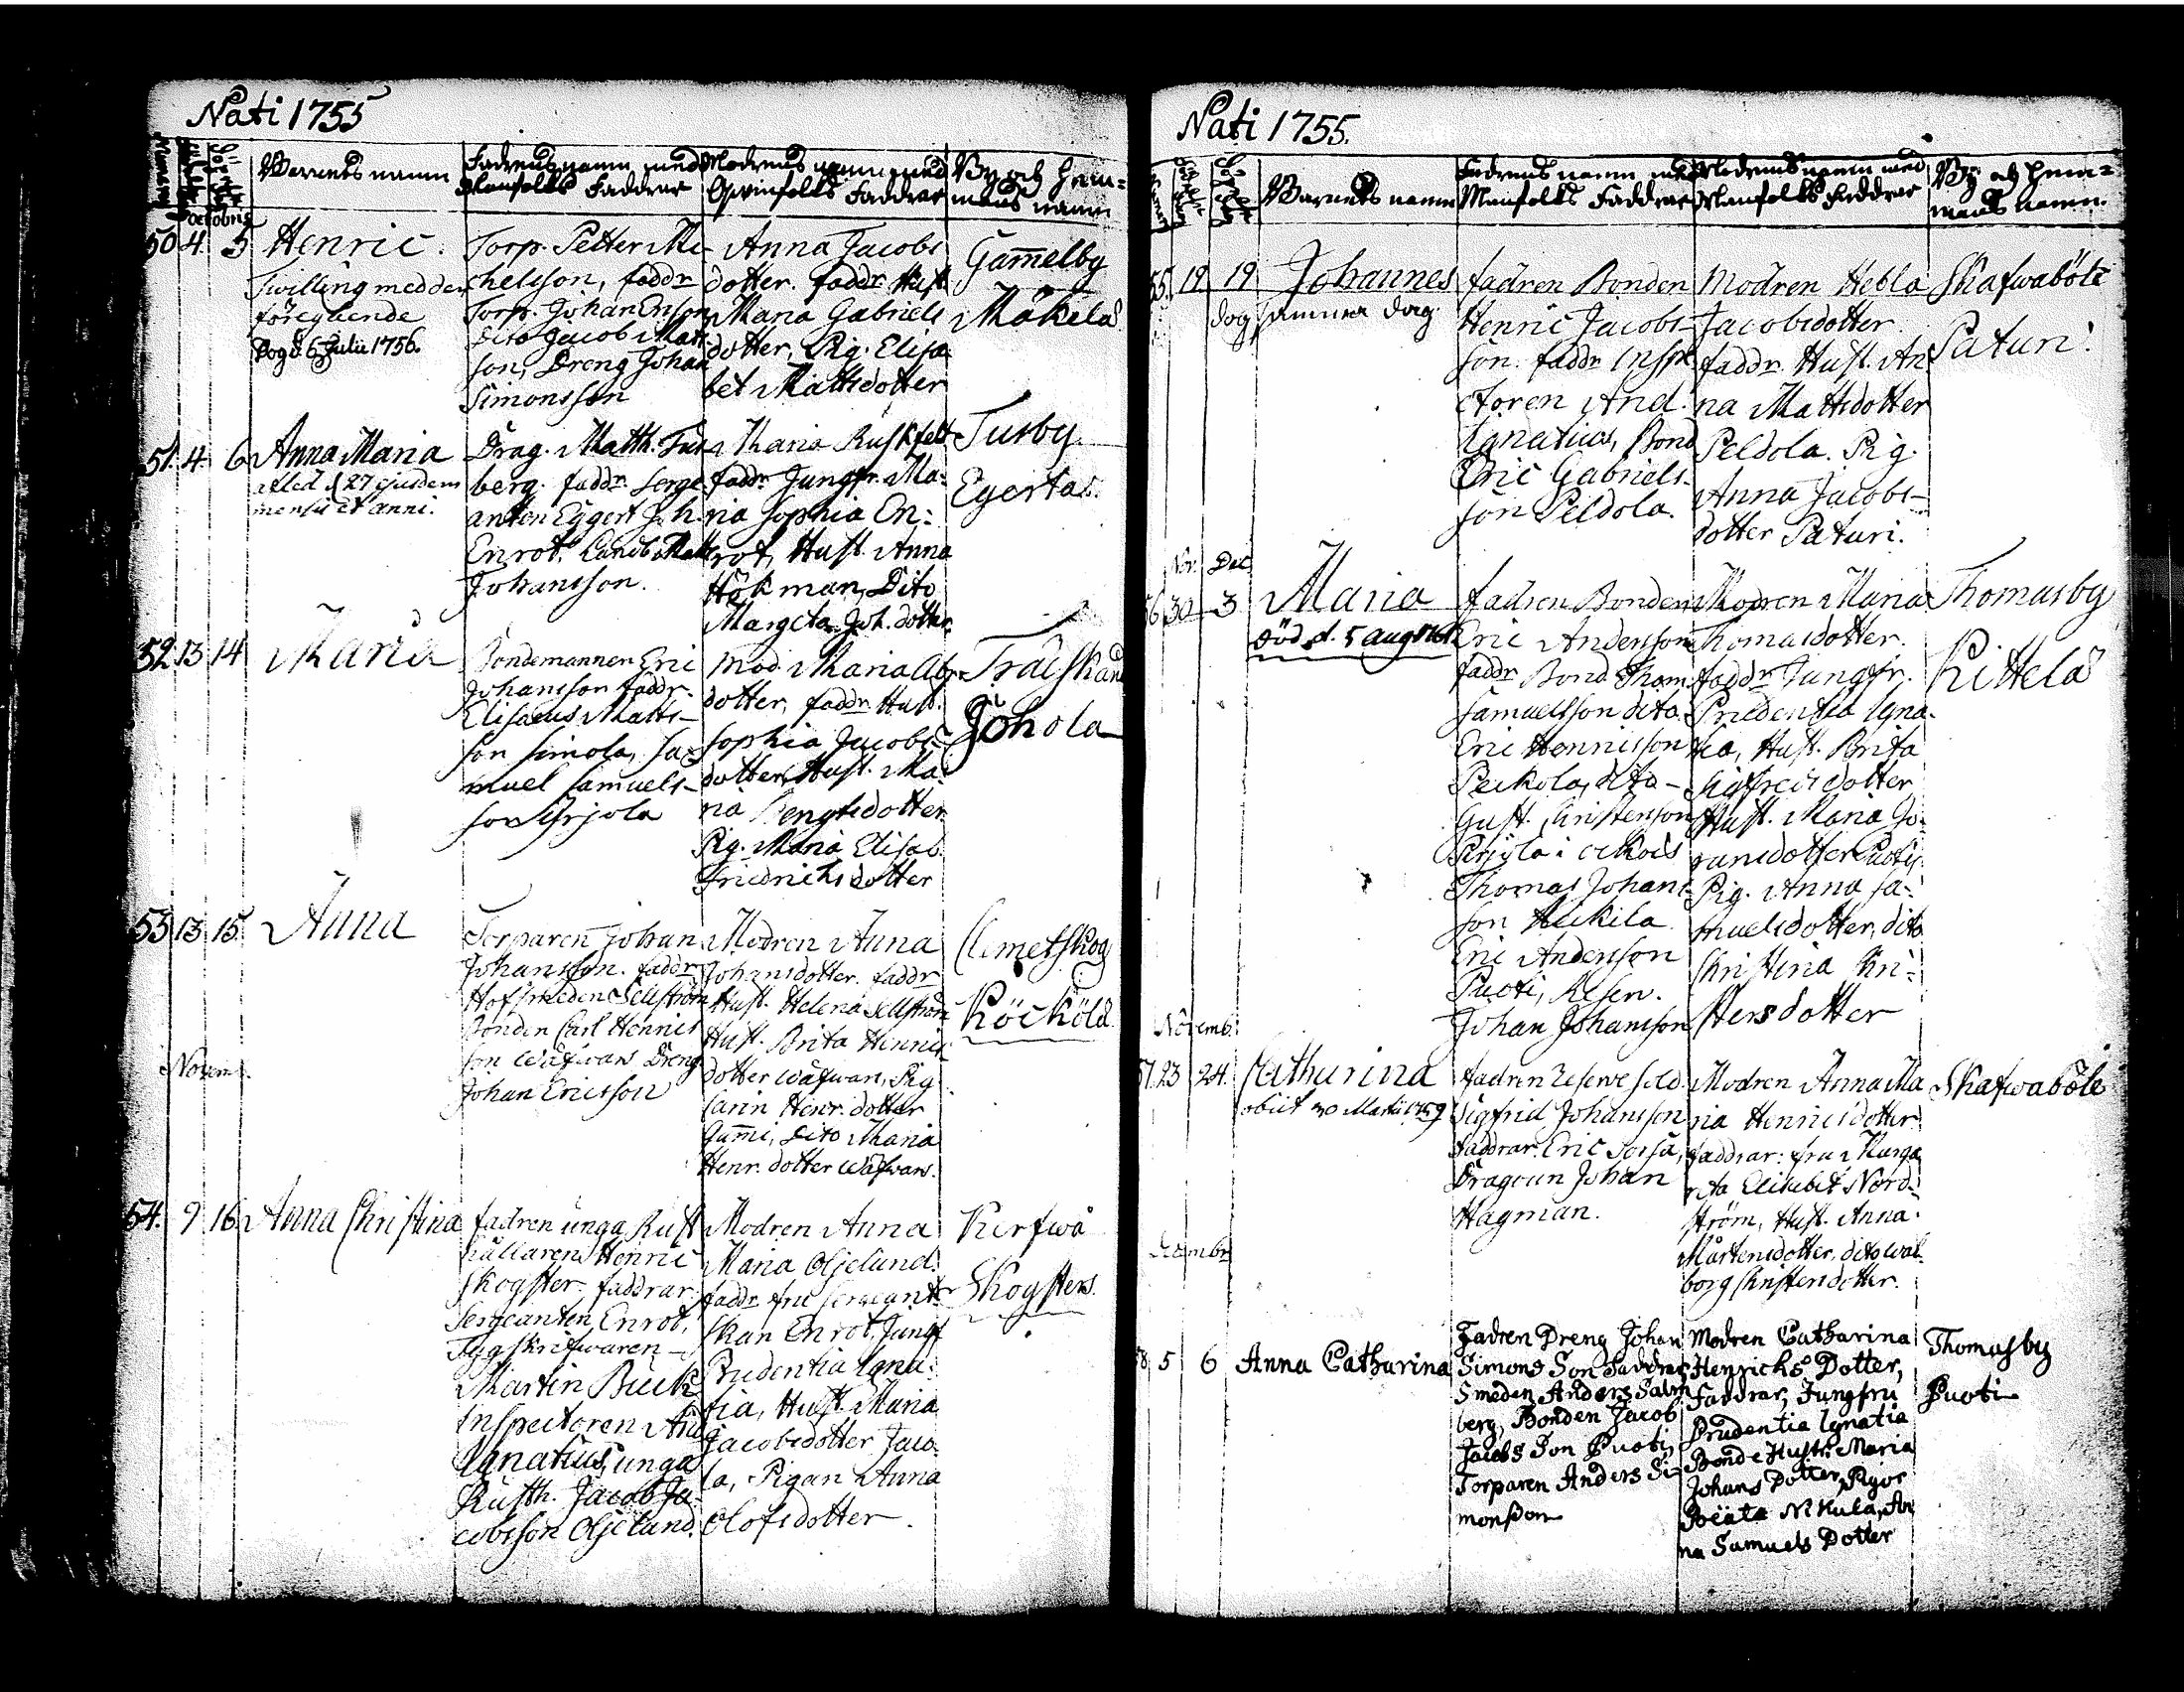 Nati 1755
Barnets namn
Fadrens namn med Manfolks Faddrar
Modrens namn med Qvinfolks Faddrar
By och Hemmans namn
Octobris
50 4. 5 Henric
Twilling med den
föregående
Dog d 6 Julii 1756.
Torp. Petter Mi-
chelsson, faddr
Torp. Johan Ersson
Dito Jacob Matt
son, Dreng Johan
Simonsson
Anna Jacobs
dotter. faddr Hust
Maria Gabriels
dotter, Pig. Elisa
bet Mattsdotter
Gamelby
Mäkelä
51. 4. 6 Anna Maria
afled d 27 ejusdem
mensis et anni.
Drag. Matth. Tus
berg. faddr. Serge
anten Eggert Joh.
Enrot,
Johansson.
Maria Ruskfelt
faddr Jungfr. Ma-
ria Sophia En-
rot, Hust. Anna
Hökman, Dito
Margeta Joh. dotter
Tusby
Egertas.
52. 13 14 Maria
Bondemannen Eric
Johansson faddr.
Elisaeus Matts-
son Simola, Sa-
muel Samuels-
son Yrjola
Mod. Maria
dotter, faddr Hust.
Sophia Jacobs
dotter, Hust. Ma
ria Bengtsdotter
Pig. Maria Elisab.
Friedrichsdotter
Träskand
Johola
53 13 15. Anna
Torparen Johan
Johansson. faddr
Hofsmeden Sellström
Bonden Carl Henrics
son Wäfwars Dreng
Johan Ericsson
Modren Anna
Johansdotter. faddr
Hust. Helena Sellström
Hust. Brita Henrics
dotter Wäfwars, Pig
Carin Henr. dotter
Gumi, Dito Maria
Henr. dotter Wäfwars.
Clemetskog
Köckölä
Novem.
54. 9 16 Anna Christina
fadren unga Rust
hållaren Henric
Skogster. faddrar
Sergeanten Enrot,
Tygskrifwaren
Martin Bück
Inspectoren And
Ignatius, unga
Rusth. Jacob Ja-
cobsson Oljelund.
Modren Anna
Maria Oljelund.
faddr fru sergeant-
skan Enrot, Jungf
Prudentia Igna-
tia, Hust. Maria
Jacobsdotter Jaco-
la, Pigan Anna
Olofsdotter.
Kerfwo
Skogsters.
Nati 1755.
Barnets namn
Fadrens namn med Manfolks Faddrar
Modrens namn med Manfolks Faddrar
By och Hem-
mans namn.
55. 19 19 Johannes
dog samma dag.
fadren Bonden
Henric Jacobs-
son. faddr Inspe
ctoren And.
Ignatius, Bond
Eric Gabriels-
son Peldola.
Modren Hebla
Jacobsdotter
faddr. Hust. An
na Mattsdotter
Peldola. Pig.
Anna Jacobs-
dotter Paturi.
Skafwaböle
Paturi.
Nov. Dec.
56 30 3 Maria
Död d. 5 aug
fadren Bonden
Eric Andersson
faddr Bond Thom
Samuelsson dito
Eric Henricsson
Peckola, dito
Gust. Christersson
Pirjola
Thomas Johans
son Heikila
Eric Andersson
Puoti,
Johan Johansson
Modren Maria
Thomasdotter.
faddr Jungfr.
Prudentia Igna-
tia, Hust. Brita
Sigfredsdotter
Hust. Maria Jo-
hansdotter Puoti,
Pig. Anna Sa-
muelsdotter, dito
Christina Chri-
stersdotter
Thomasby
Kittelä
Novemb.
57. 23 24. Catharina
obiit 30 Martii 1759
fadren Reserve Sold.
Sigfrid Johansson
faddrar. Eric Sorsa,
Dragoun Johan
Hagman.
Modren Anna Ma
ria Henricsdotter
faddrar: fru Marga
reta Elisabet Nord-
ström, Hust. Anna
Mårtensdotter, dito Wal-
borg Christersdotter.
Skafwaböle
Decembr
58. 5 6 Anna Catharina
Fadren Dreng Johan
Simons Son Faddrar,
Smeden Anders Salm
berg, Bonden Jacob
Jacobs Son Puoti,
Torparen Anders Si-
monsson
Modren Catharina
Henrichs Dotter,
Faddrar, Jungfru
Prudentia Ignatia
Bonde Hustr. Maria
Johans Dotter, Pigor
Beata Nikula, An
na Samuels Dotter
Thomasby
Puoti